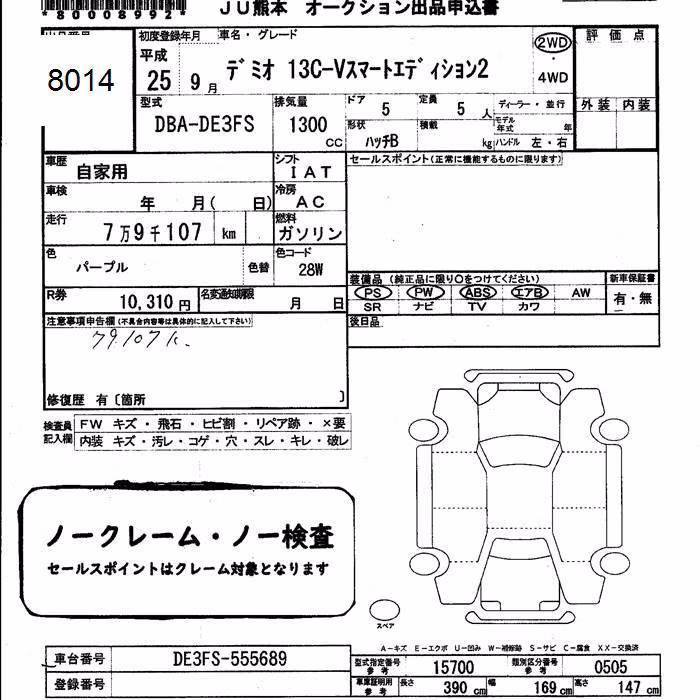 *80008992*
JU熊本 オークション出品申込書
8014
初度登録年月
車名・グレード
平成
25 9月
デミオ 13C-Vスマートエディション2
2WD
・
4WD
評価点
外装 内装
型式
DBA-DE3FS
排気量
1300
cc
ドア
5
定員
5
人
ディーラー・並行
モデル年式
年
形状
ハッチB
積載
kg
ハンドル 左・右
車歴
自家用
シフト
IAT
セールスポイント(正常に機能するものに限ります)
車検
年 月( 日)
冷房
AC
走行
7万9千107 km
燃料
ガソリン
色
パープル
色替
色コード
28W
装備品 (純正品に限り〇をつけてください)
新車保証書
PS PW ABS エアB AW
SR ナビ TV カワ
有・無
R券
10,310円
名変通知期限
月 日
後日品
注意事項申告欄(不具合内容等は具体的に記入して下さい)
79,107k.
修復歴 有〔箇所 〕
検査員
記入欄
FW キズ・飛石・ヒビ割・リペア跡・×要
内装 キズ・汚レ・コゲ・穴・スレ・キレ・破レ
ノークレーム・ノー検査
セールスポイントはクレーム対象となります
スペア
A-キズ E-エクボ U-凹み W-補修跡 S-サビ C-腐食 XX-交換済
車台番号
DE3FS-555689
登録番号
型式指定番号
参考
15700
類別区分番号
参考
0505
車庫証明用
参考
長さ
390 cm
幅
169 cm
高さ
147 cm